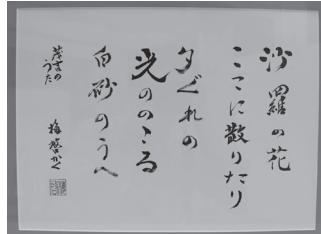 沙羅の花
ここに散りたり
夕ぐれの
光ののこる
白砂のうへ
茂吉の
うた
かく